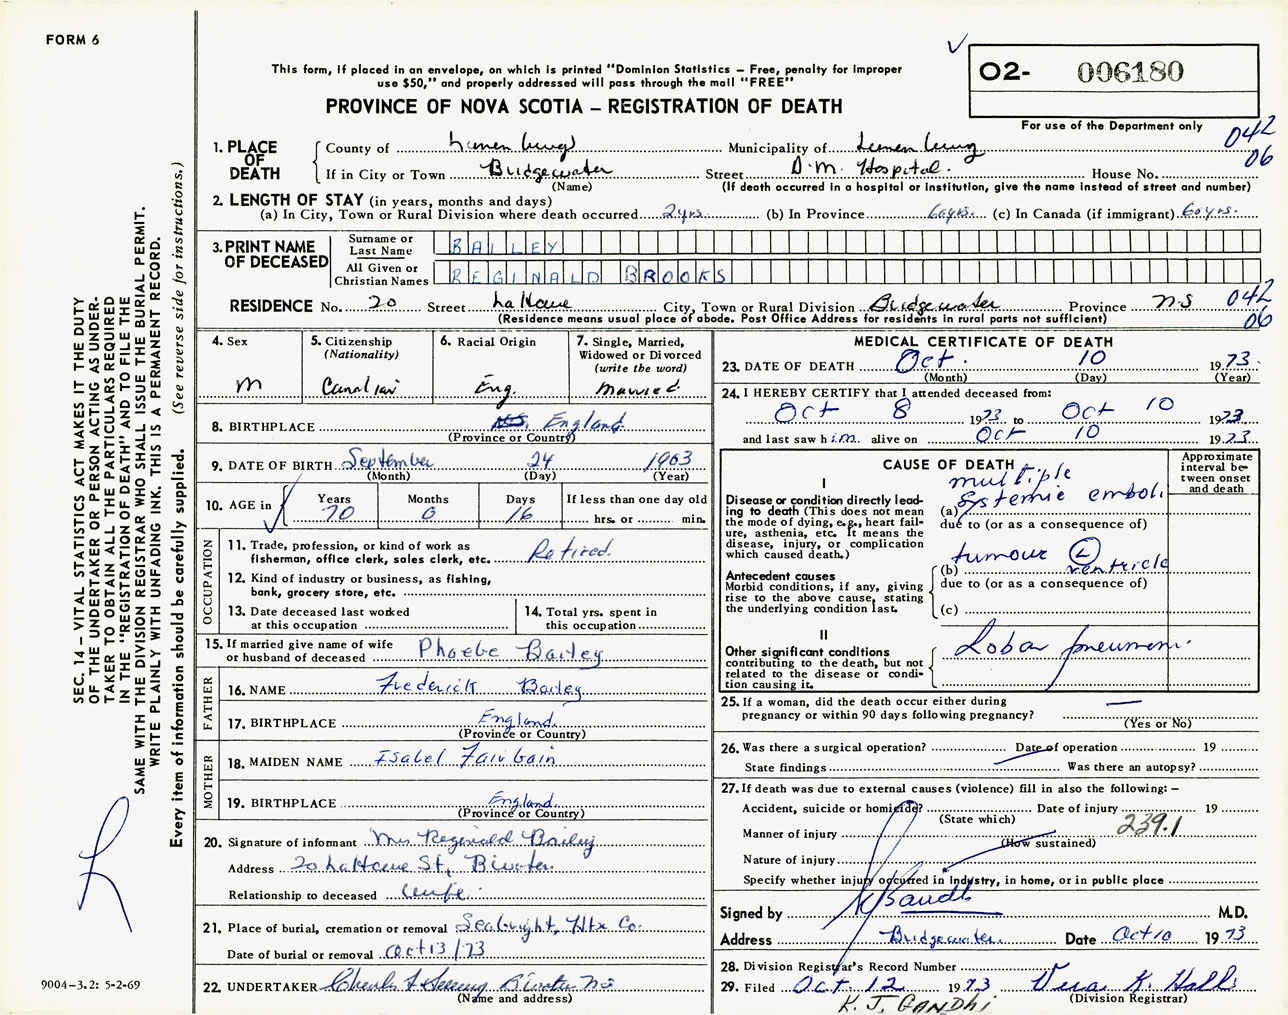 FORM 6
This form, if placed in an envelope, on which is printed "Dominion Statistics – Free, penalty for improper
use $50," and properly addressed will pass through the mail "FREE"
PROVINCE OF NOVA SCOTIA – REGISTRATION OF DEATH
O2- 006180
For use of the Department only
042
06
1. PLACE OF DEATH
County of Lunenburg Municipality of Lunenburg
If in City or Town Bridgewater Street D.M. Hospital. House No.
(Name) (If death occurred in a hospital or institution, give the name instead of street and number)
2. LENGTH OF STAY (in years, months and days)
(a) In City, Town or Rural Division where death occurred 2 yrs. (b) In Province 60 yrs. (c) In Canada (if immigrant) 60 yrs.
3. PRINT NAME OF DECEASED
Surname or Last Name BAILEY
All Given or Christian Names REGINALD BROOKS
RESIDENCE No. 20 Street LaHave City, Town or Rural Division Bridgewater Province N.S 042
(Residence means usual place of abode. Post Office Address for residents in rural parts not sufficient) 06
4. Sex
M
5. Citizenship
(Nationality)
Canadian
6. Racial Origin
Eng.
7. Single, Married,
Widowed or Divorced
(write the word)
Married
8. BIRTHPLACE England.
(Province or Country)
9. DATE OF BIRTH September 24 1903
(Month) (Day) (Year)
10. AGE in
Years Months Days If less than one day old
70 0 16 hrs. or min.
OCCUPATION
11. Trade, profession, or kind of work as
fisherman, office clerk, sales clerk, etc. Retired.
12. Kind of industry or business, as fishing,
bank, grocery store, etc.
13. Date deceased last worked
at this occupation
14. Total yrs. spent in
this occupation
15. If married give name of wife
or husband of deceased Phoebe Bailey
FATHER
16. NAME Frederick Bailey
17. BIRTHPLACE England.
(Province or Country)
MOTHER
18. MAIDEN NAME Isabel Fairbain
19. BIRTHPLACE England.
(Province or Country)
20. Signature of informant Mrs Reginald Bailey
Address 20 LaHave St, B'water.
Relationship to deceased Wife.
21. Place of burial, cremation or removal Seabright, Hfx Co.
Date of burial or removal Oct 13/73
22. UNDERTAKER Charles B'water NS
(Name and address)
MEDICAL CERTIFICATE OF DEATH
23. DATE OF DEATH Oct. 10 1973.
(Month) (Day) (Year)
24. I HEREBY CERTIFY that I attended deceased from:
Oct 8 1973 to Oct 10 1973
and last saw him alive on Oct 10 1973
CAUSE OF DEATH
Approximate
interval be-
tween onset
and death
I
Disease or condition directly lead-
ing to death (This does not mean
the mode of dying, e.g., heart fail-
ure, asthenia, etc. It means the
disease, injury, or complication
which caused death.)
multiple
(a) systemic emboli
due to (or as a consequence of)
Antecedent causes
Morbid conditions, if any, giving
rise to the above cause, stating
the underlying condition last.
tumour L
(b) ventricle
due to (or as a consequence of)
(c)
II
Other significant conditions
contributing to the death, but not
related to the disease or condi-
tion causing it.
Lobar pneumoni
25. If a woman, did the death occur either during
pregnancy or within 90 days following pregnancy? —
(Yes or No)
26. Was there a surgical operation? Date of operation 19
State findings Was there an autopsy?
27. If death was due to external causes (violence) fill in also the following: –
Accident, suicide or homicide? Date of injury 19
(State which)
239.1
Manner of injury
(How sustained)
Nature of injury
Specify whether injury occurred in Industry, in home, or in public place
Signed by K Gandhi M.D.
Address Bridgewater. Date Oct 10 1973
28. Division Registrar's Record Number
29. Filed Oct. 12 1973 Vera K. Halls
(Division Registrar)
K. J. GANDHI
SEC. 14 – VITAL STATISTICS ACT MAKES IT THE DUTY
OF THE UNDERTAKER OR PERSON ACTING AS UNDER-
TAKER TO OBTAIN ALL THE PARTICULARS REQUIRED
IN THE "REGISTRATION OF DEATH" AND TO FILE THE
SAME WITH THE DIVISION REGISTRAR WHO SHALL ISSUE THE BURIAL PERMIT.
WRITE PLAINLY WITH UNFADING INK. THIS IS A PERMANENT RECORD.
Every item of information should be carefully supplied. (See reverse side for instructions.)
9004-3.2: 5-2-69